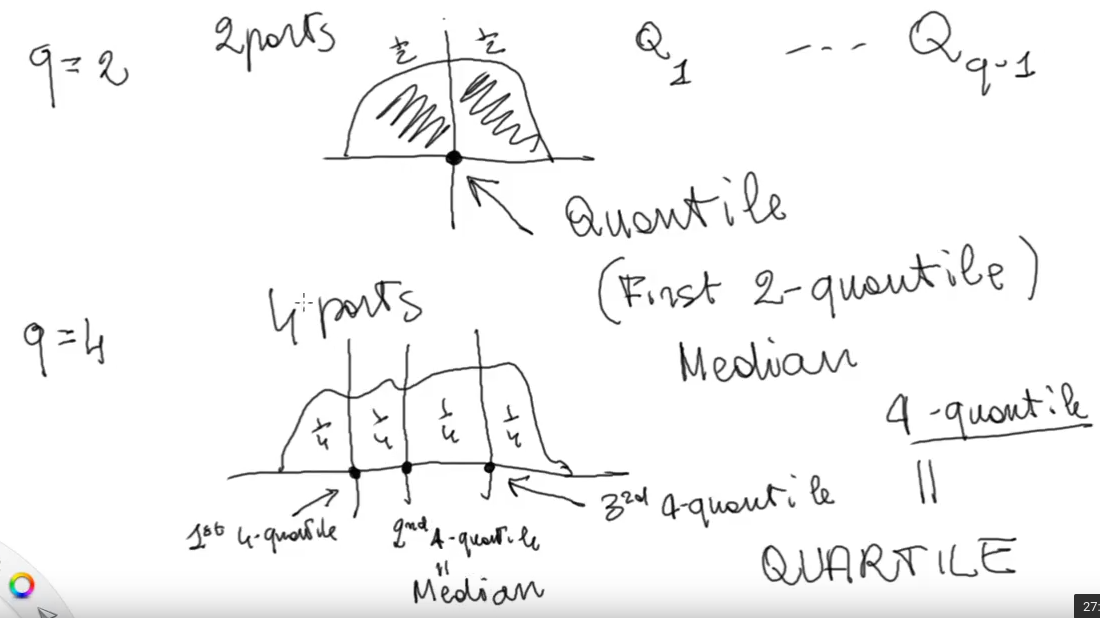 q = 2
2 parts
1/2
1/2
Q1 --- Qq-1
Quantile
(First 2-quantile)
Median
q = 4
4 parts
1/4
1/4
1/4
1/4
1st 4-quantile
2nd 4-quantile
||
Median
3rd 4-quantile
4-quantile
||
QUARTILE
27: